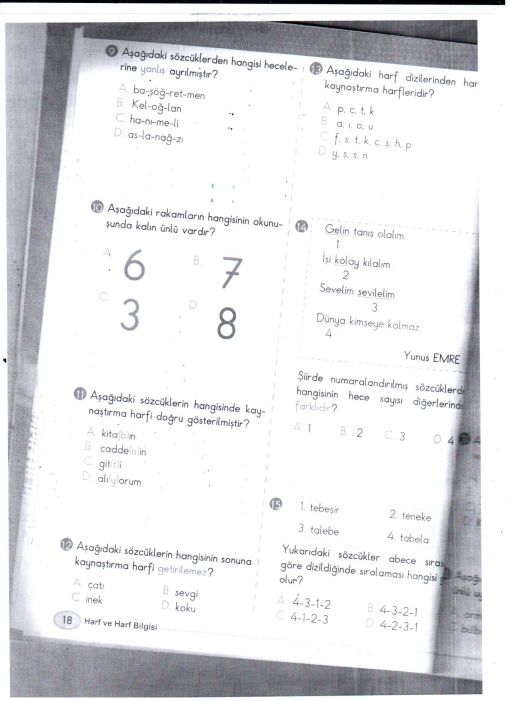 9 Aşağıdaki sözcüklerden hangisi hecele-
rine yanlış ayrılmıştır?
A. ba-şöğ-ret-men
B. Kel-oğ-lan
C. ha-nı-me-li
D. as-la-nağ-zı
10 Aşağıdaki rakamların hangisinin okunu-
şunda kalın ünlü vardır?
A. 6
B. 7
C. 3
D. 8
11 Aşağıdaki sözcüklerin hangisinde kay-
naştırma harfi doğru gösterilmiştir?
A. kita(b)ın
B. cadde(n)in
C. git(t)i
D. alı(y)orum
12 Aşağıdaki sözcüklerin hangisinin sonuna
kaynaştırma harfi getirilemez?
A. çatı
B. sevgi
C. inek
D. koku
18 Harf ve Harf Bilgisi
13 Aşağıdaki harf dizilerinden
kaynaştırma harfleridir?
A. p, ç, t, k
B. a, ı, o, u
C. f, s, t, k, ç, ş, h, p
D. y, ş, s, n
14 Gelin tanış olalım
1
İşi kolay kılalım
2
Sevelim sevilelim
3
Dünya kimseye kalmaz
4
Yunus EMRE
Şiirde numaralandırılmış
hangisinin hece sayısı
farklıdır?
A. 1
B. 2
C. 3
D. 4
15 1. tebeşir
2. teneke
3. talebe
4. tabela
Yukarıdaki sözcükler abece
göre dizildiğinde sıralaması hangisi
olur?
A. 4-3-1-2
B. 4-3-2-1
C. 4-1-2-3
D. 4-2-3-1